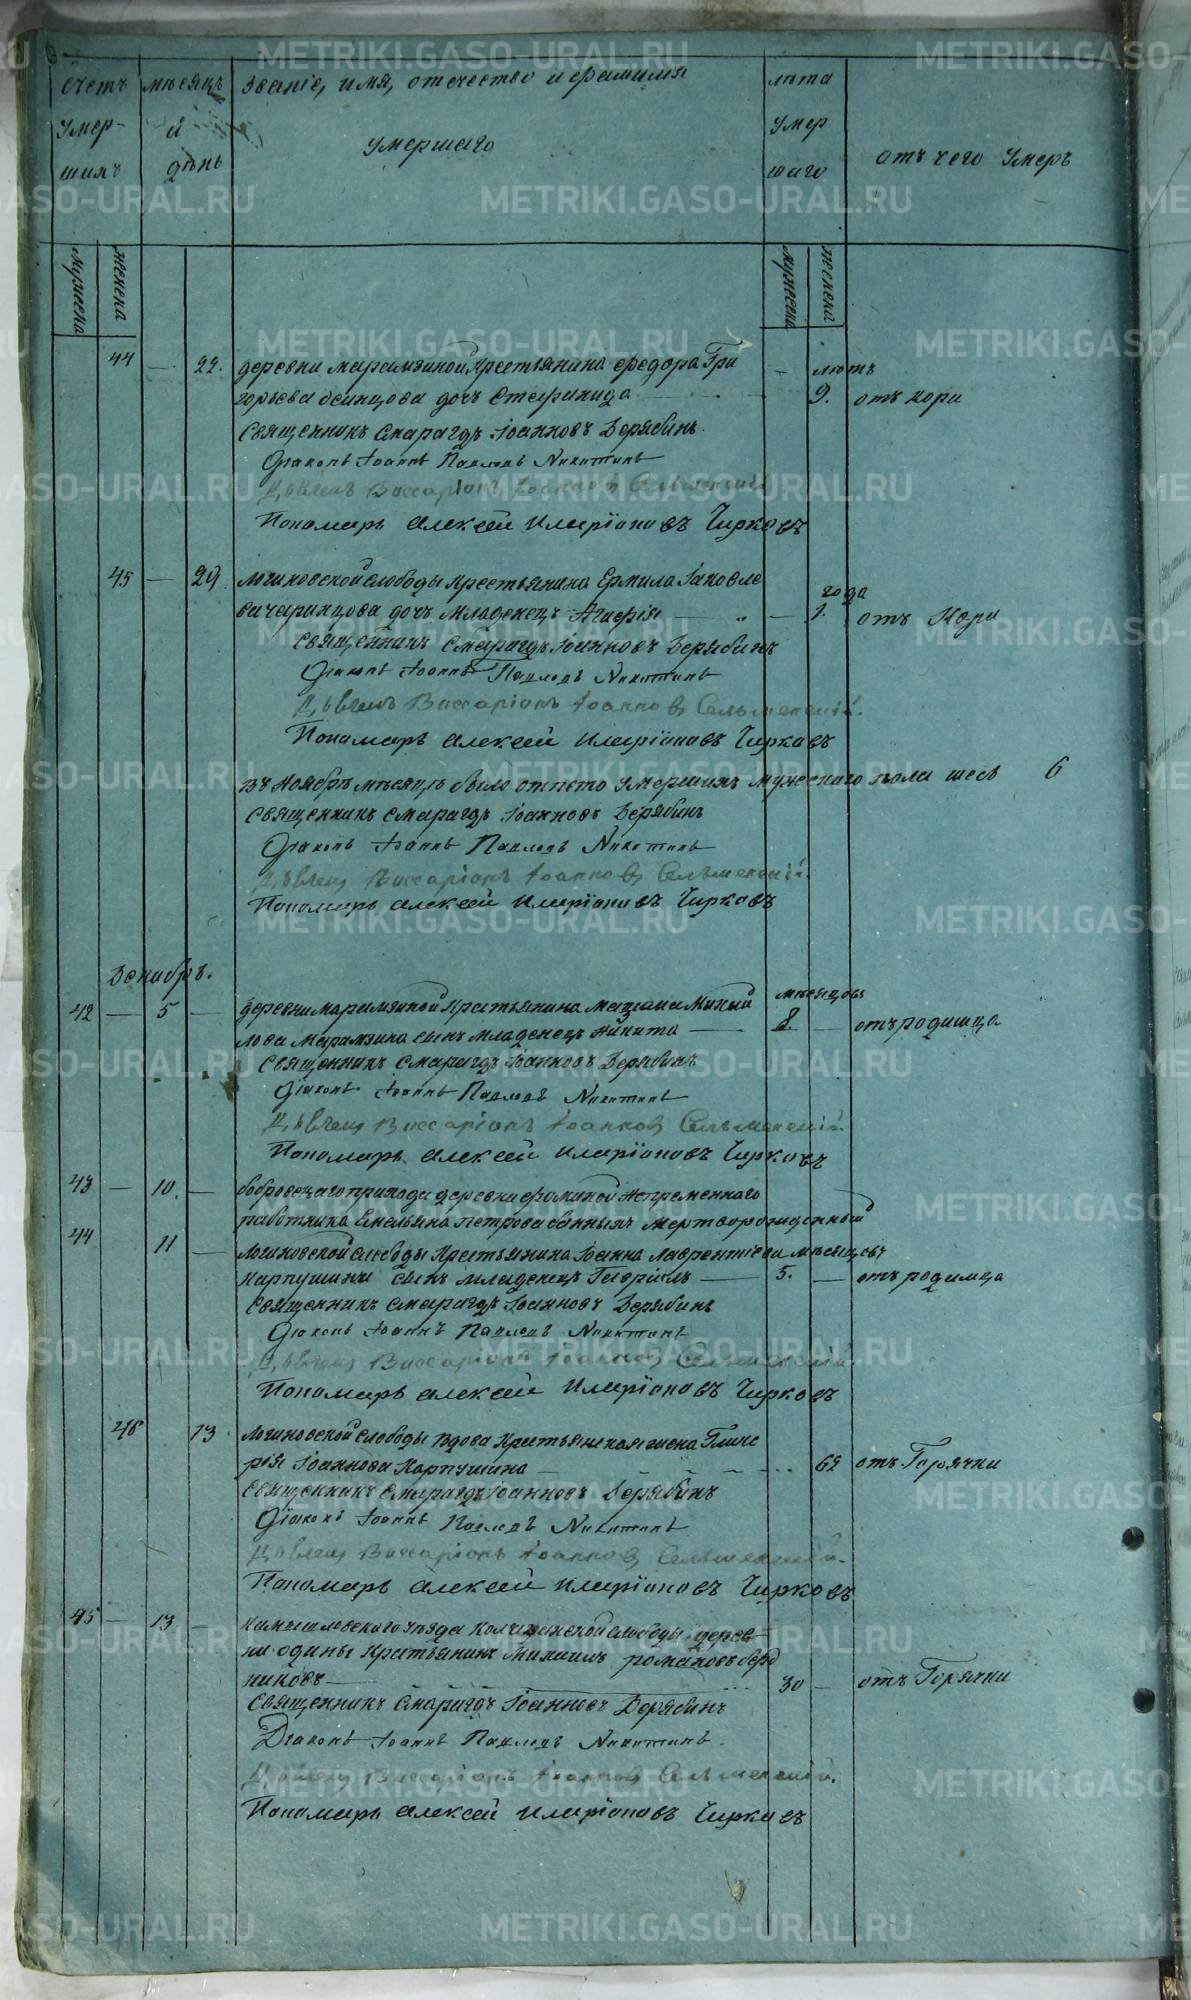 счетъ умер- шихъ
мѣсяцъ и день
Званіе, имя, отчество и фамилія
умершаго
лѣта умер шаго
отъ чего умеръ
мужеска
женска
мужеска
женска
44 — 22. деревни Марамзиной крестьянина Федора Гри — лѣтъ
горьева Осинцова дочь Стефанида 9. отъ кори
Священникъ Смарагдъ Іоанновъ Дерябинъ.
Діаконъ Іоаннъ Павловъ Никитинъ
Дьячекъ Виссаріонъ Іоанновъ Сельменскій
Пономарь Алексей Иларіоновъ Чирковъ
45 — 29 Логиновской слободы крестьянина Ермила Іаковле года
ва Чаринцова дочь младенецъ Агафія — „ — 1. отъ кори
Священникъ Смарагдъ Іоанновъ Дерябинъ
Діаконъ Іоаннъ Павловъ Никитинъ
Дьячекъ Виссаріонъ Іоанновъ Сельменскій.
Пономарь Алексей Иларіоновъ Чирковъ
въ Ноябрѣ мѣсяцѣ было отпето умершихъ мужескаго пола шесь 6
Священникъ Смарагдъ Іоанновъ Дерябинъ
Діаконъ Іоаннъ Павловъ Никитинъ
Дьячекъ Виссаріонъ Іоанновъ Сельменскій.
Пономарь Алексей Иларіоновъ Чирковъ
Декабрь.
42 — 5 — деревни Марамзиной крестьянина мѣсяцовъ
лова Марамзина сынъ младенецъ Никита — 8. — отъ родимца
Священникъ Смарагдъ Іоанновъ Дерябинъ
Діаконъ Іоаннъ Павловъ Никитинъ
Дьячекъ Виссаріонъ Іоанновъ Сельменскій
Пономарь Алексей Иларіоновъ Чирковъ
43 — 10. — Бобровскаго прихода деревни Фоминой непременнаго
работника Емельяна Петрова сынъ мертворожденный
44 11 — Логиновской слободы крестьянина Іоанна Лаврентіева мѣсяцовъ
Карпушина сынъ младенецъ Гавріилъ — 5. — отъ родимца
Священникъ Смарагдъ Іоанновъ Дерябинъ
Діаконъ Іоаннъ Павловъ Никитинъ
Дьячекъ Виссаріонъ Іоанновъ Сельменскій
Пономарь Алексей Иларіоновъ Чирковъ
46 13 Логиновской слободы вдова крестьянская жена Глике
рія Іоаннова Карпушина — 62 отъ Горячки
Священникъ Смарагдъ Іоанновъ Дерябинъ
Діаконъ Іоаннъ Павловъ Никитинъ
Дьячекъ Виссаріонъ Іоанновъ Сельменскій.
Пономарь Алексей Иларіоновъ Чирковъ
45 — 13 — Камышловскаго уѣзда слободы дерев-
ни Одины крестьянинъ Михаилъ Романовъ Берд
никовъ — 30 — отъ Горячки
Священникъ Смарагдъ Іоанновъ Дерябинъ
Діаконъ Іоаннъ Павловъ Никитинъ.
Дьячекъ Виссаріонъ Іоанновъ Сельменскій.
Пономарь Алексей Иларіоновъ Чирковъ
METRIKI.GASO-URAL.RU